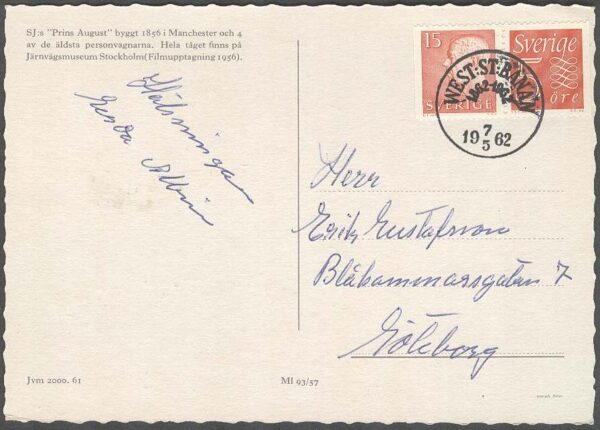 SJ:s "Prins August" byggt 1856 i Manchester och 4
av de äldsta personvagnarna. Hela tåget finns på
Järnvägsmuseum Stockholm(Filmupptagning 1956).
Hälsningar
Albin
15
SVERIGE
Sverige
öre
WEST:ST:BANAN
1862-1962
7
19 62
5
Herr
Erik Gustafsson
Blåkammarsgatan 7
Göteborg
Jvm 2000. 61
Ml 93/57